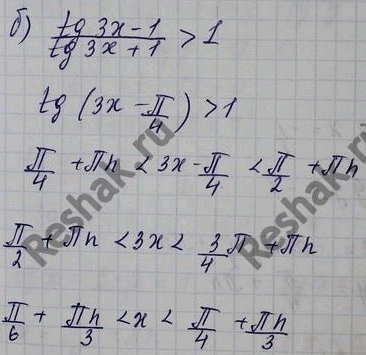 б) (tg 3x - 1)/(tg 3x + 1) > 1
tg (3x - π/4) > 1
π/4 + πn < 3x - π/4 < π/2 + πn
π/2 + πn < 3x < 3/4 π + πn
π/6 + πn/3 < x < π/4 + πn/3
Reshak.ru
Reshak.ru